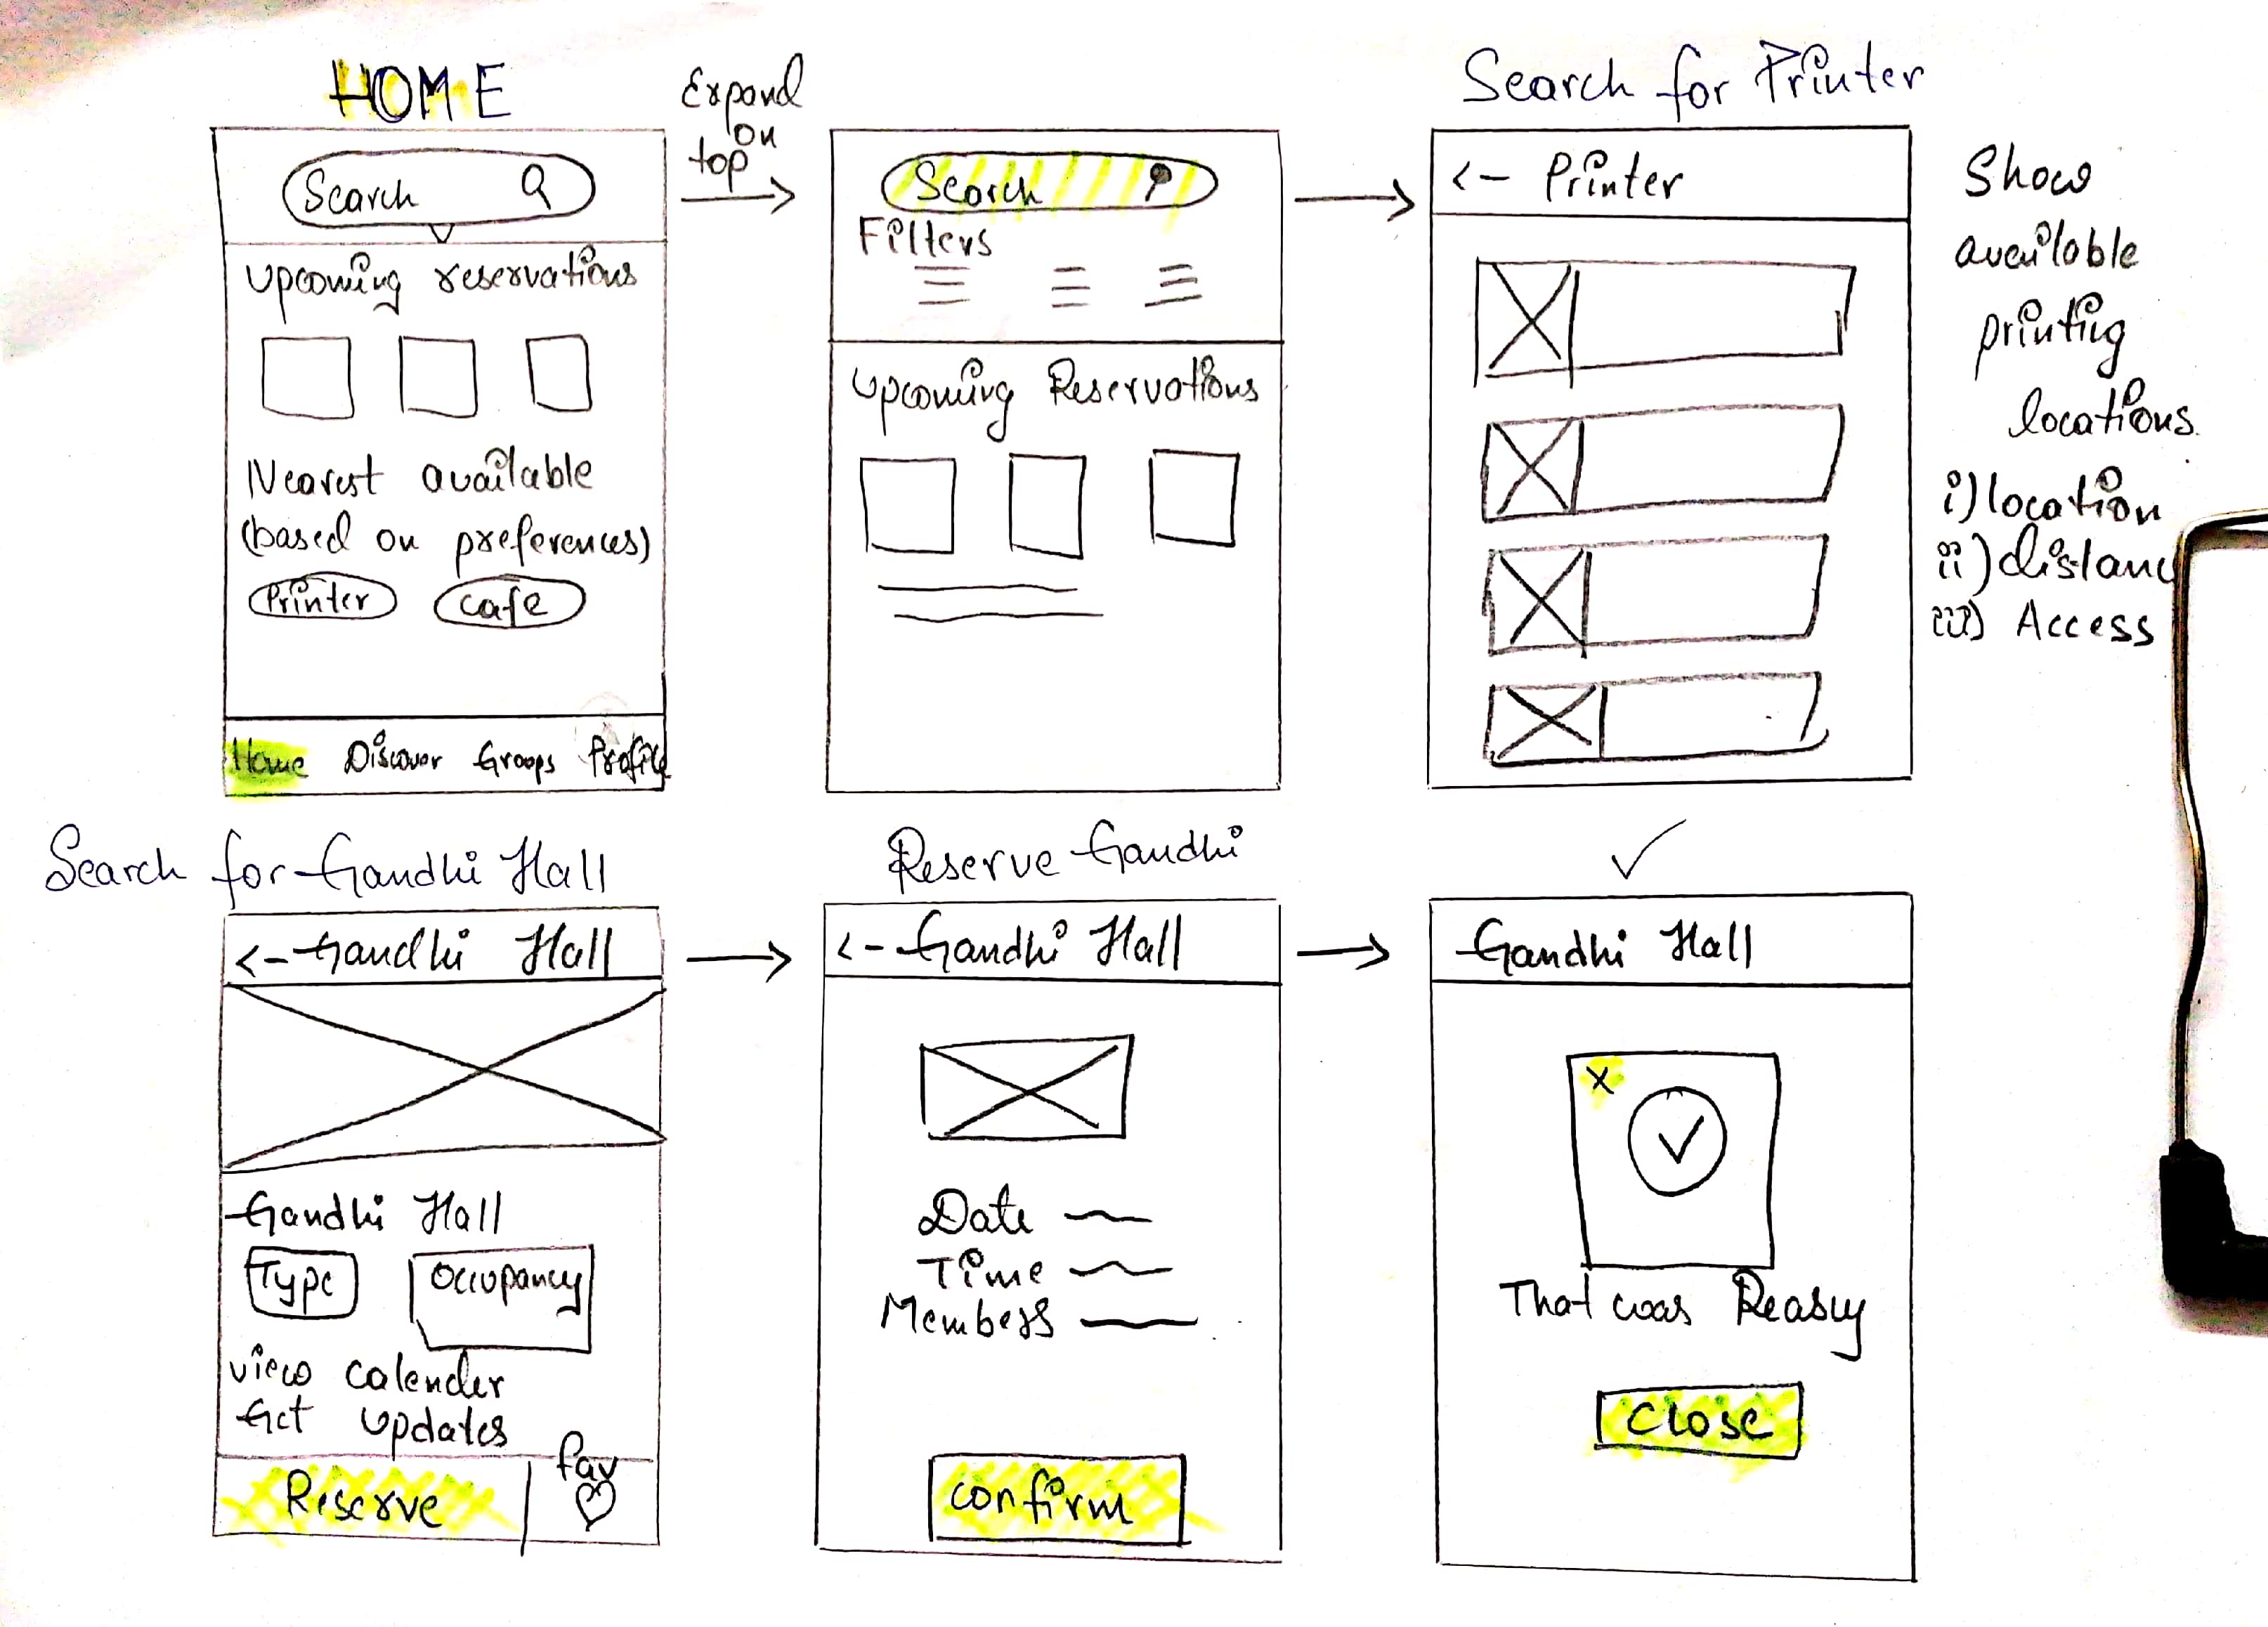 HOME
Search
Upcoming reservations
Nearest available
(based on preferences)
Printer
cafe
Home Discover Groups Profile
Expand
on
top
Search
Filters
Upcoming Reservations
Search for Printer
<- Printer
Show
available
printing
locations.
i) location
ii) distanc
iii) Access
Search for Gandhi Hall
<- Gandhi Hall
Gandhi Hall
Type
Occupancy
view calender
Get updates
Reserve
fav
Reserve Gandhi
<- Gandhi Hall
Date
Time
Members
confirm
Gandhi Hall
X
That was Reasy
Close